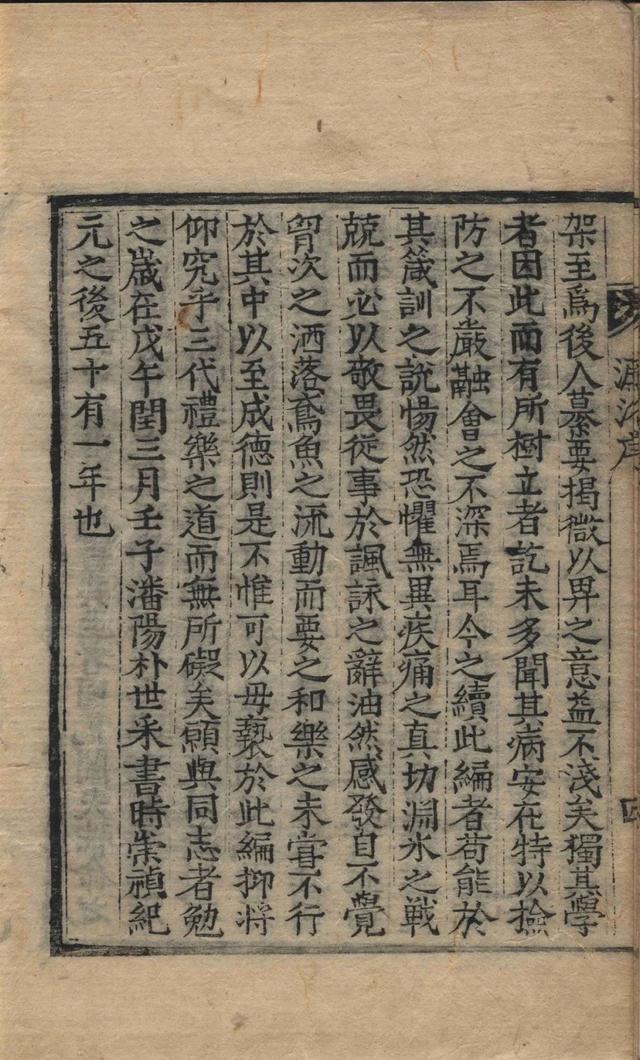 架至爲後人綦要揭微以畀之意益不淺矣獨其學
者因此而有所樹立者訖未多聞其病安在特以撿
防之不嚴融會之不深焉耳今之續此編者苟能於
其箴訓之說惕然恐懼無異疾痛之真切淵氷之戰
兢而必以敬畏從事於諷詠之辭油然感發自不覺
胷次之洒落鳶魚之流動而要之和樂之未甞不行
於其中以至成德則是不惟可以毋褻於此編抑將
仰究乎三代禮樂之道而無所礙矣願與同志者勉
之歲在戊午閏三月壬子潘陽朴世采書時崇禎紀
元之後五十有一年也
濂洛序
四